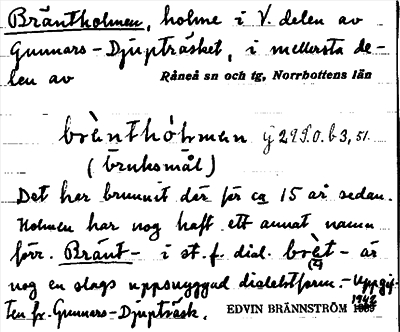 Bräntholmen, holme i V. delen av
Gunnars-Djupträsket, i mellersta de-
len av Råneå sn och tg, Norrbottens län
brànthòlman
(bruksmål)
Det har brunnit där för ca 15 år sedan.
Holmen har nog haft ett annat namn
förr. Bränt- i st. f. dial. brèt- är
nog en slags uppsnyggad dialektform. - Uppgif-
ten fr. Gunnars-Djupträsk. EDVIN BRÄNNSTRÖM 1942